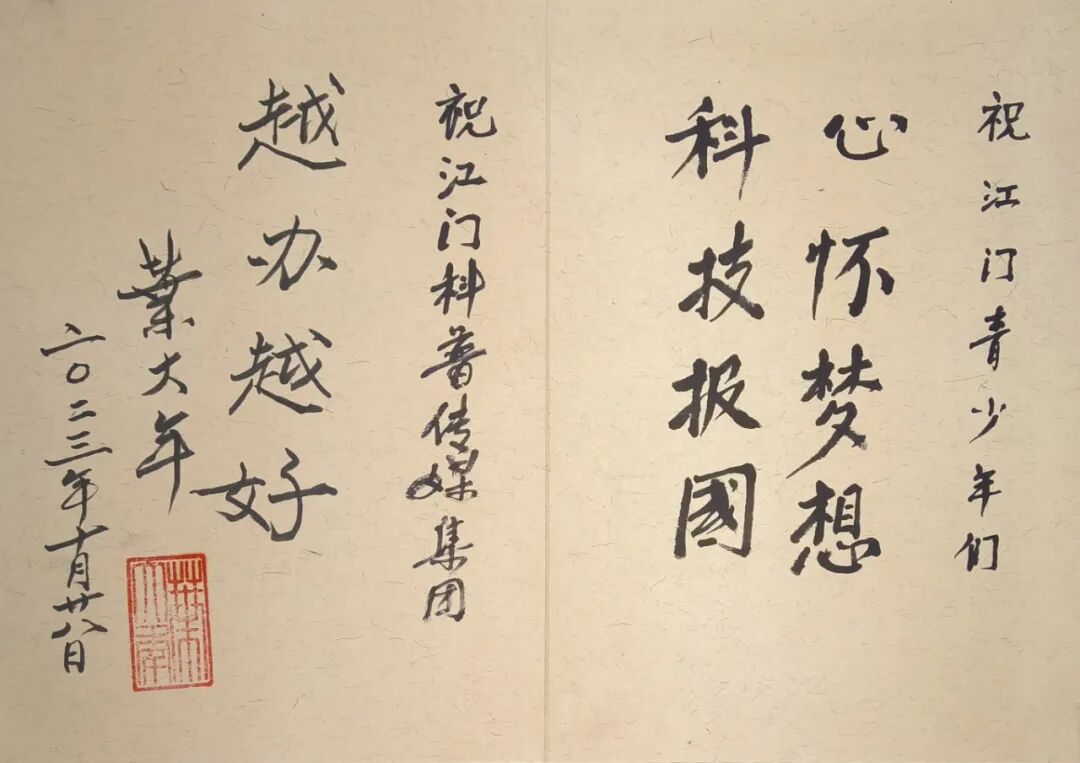 祝江门青少年们
心怀梦想
科技报国
祝江门科普传媒集团
越办越好
葉大年
二〇二三年十月廿八日
葉大年